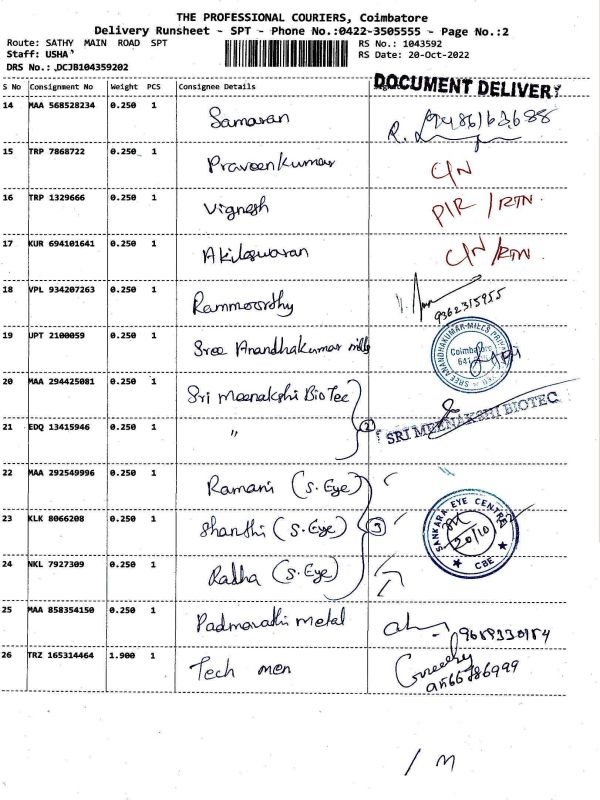 THE PROFESSIONAL COURIERS, Coimbatore
Delivery Runsheet - SPT - Phone No.:0422-3505555 - Page No.:2
Route: SATHY MAIN ROAD SPT
Staff: USHA
DRS No.: DCJB104359202
RS No.: 1043592
RS Date: 20-Oct-2022
DOCUMENT DELIVERY
S No Consignment No Weight PCS Consignee Details
14 MAA 568528234 0.250 1 Samaran
15 TRP 7868722 0.250 1 Praveenkumar C/N
16 TRP 1329666 0.250 1 Vignesh PIR / RTN.
17 KUR 694101641 0.250 1 Akileswaran C/N /RTN.
18 VPL 934207263 0.250 1 Rammoorthy 9362315955
19 UPT 2100059 0.250 1 Sree Anandhakumar mills
SREE ANANDHAKUMAR MILLS Coimbatore
20 MAA 294425081 0.250 1 Sri Meenakshi BioTec
21 EDQ 13415946 0.250 1 " 2 SRI MEENAKSHI BIOTEC
22 MAA 292549996 0.250 1 Ramani (S. Eye)
23 KLK 8066208 0.250 1 Shanthi (S. Eye) 3
SANKARA EYE CENTRE 20/10 CBE
24 NKL 7927309 0.250 1 Radha (S. Eye)
25 MAA 858354150 0.250 1 Padmavathi metal
26 TRZ 165314464 1.900 1 Tech men
/ M